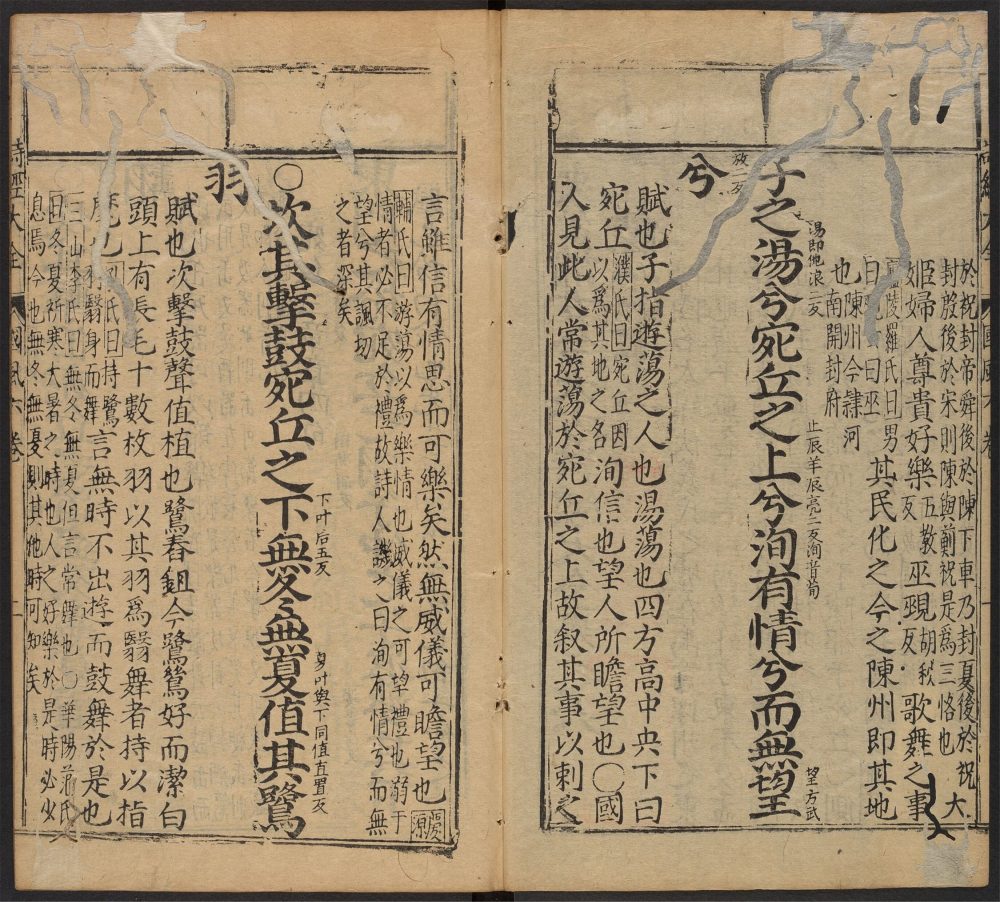 於祝封帝舜後於陳下車乃封夏後於
封殷後於宋則陳與薊祝是為三恪也大
姬婦人尊貴好樂五教反巫覡胡狄反歌舞之事
陵羅氏曰男曰巫其民化之今之陳州即其地
也陳州今隸河南開封府
子之湯湯即他浪二反兮宛丘之上止辰羊辰亮二反兮洵音荀有情兮而無望望方武
放二反兮
賦也子指遊蕩之人也湯蕩也四方高中央下曰
宛丘濮氏曰宛丘因以為其地之名洵信也望人所瞻望也○國
人見此人常遊蕩於宛丘之上故叙其事以刺之
言雖信有情思而可樂矣然無威儀可瞻望也慶源
輔氏曰游蕩以為樂情也威儀之可望禮也溺于
情者必不足於禮故詩人譏之曰洵有情兮而無
望兮其諷切之者深矣
○坎其擊鼓宛丘之下下叶后五反無冬無夏夏叶與下同值直置反值其鷺
羽
賦也坎擊鼓聲值植也鷺舂鉏今鷺鶿好而潔白
頭上有長毛十數枚羽以其羽為翳舞者持以指
麾也氏曰持鷺羽翳身而舞言無時不出遊而鼓舞於是也
三山李氏曰無冬無夏但言常舞也○華陽范氏
曰冬夏祈寒大暑之時也人之好樂於是時必少
息焉今也無冬無夏則其他時可知矣
詩經大全 國風六卷